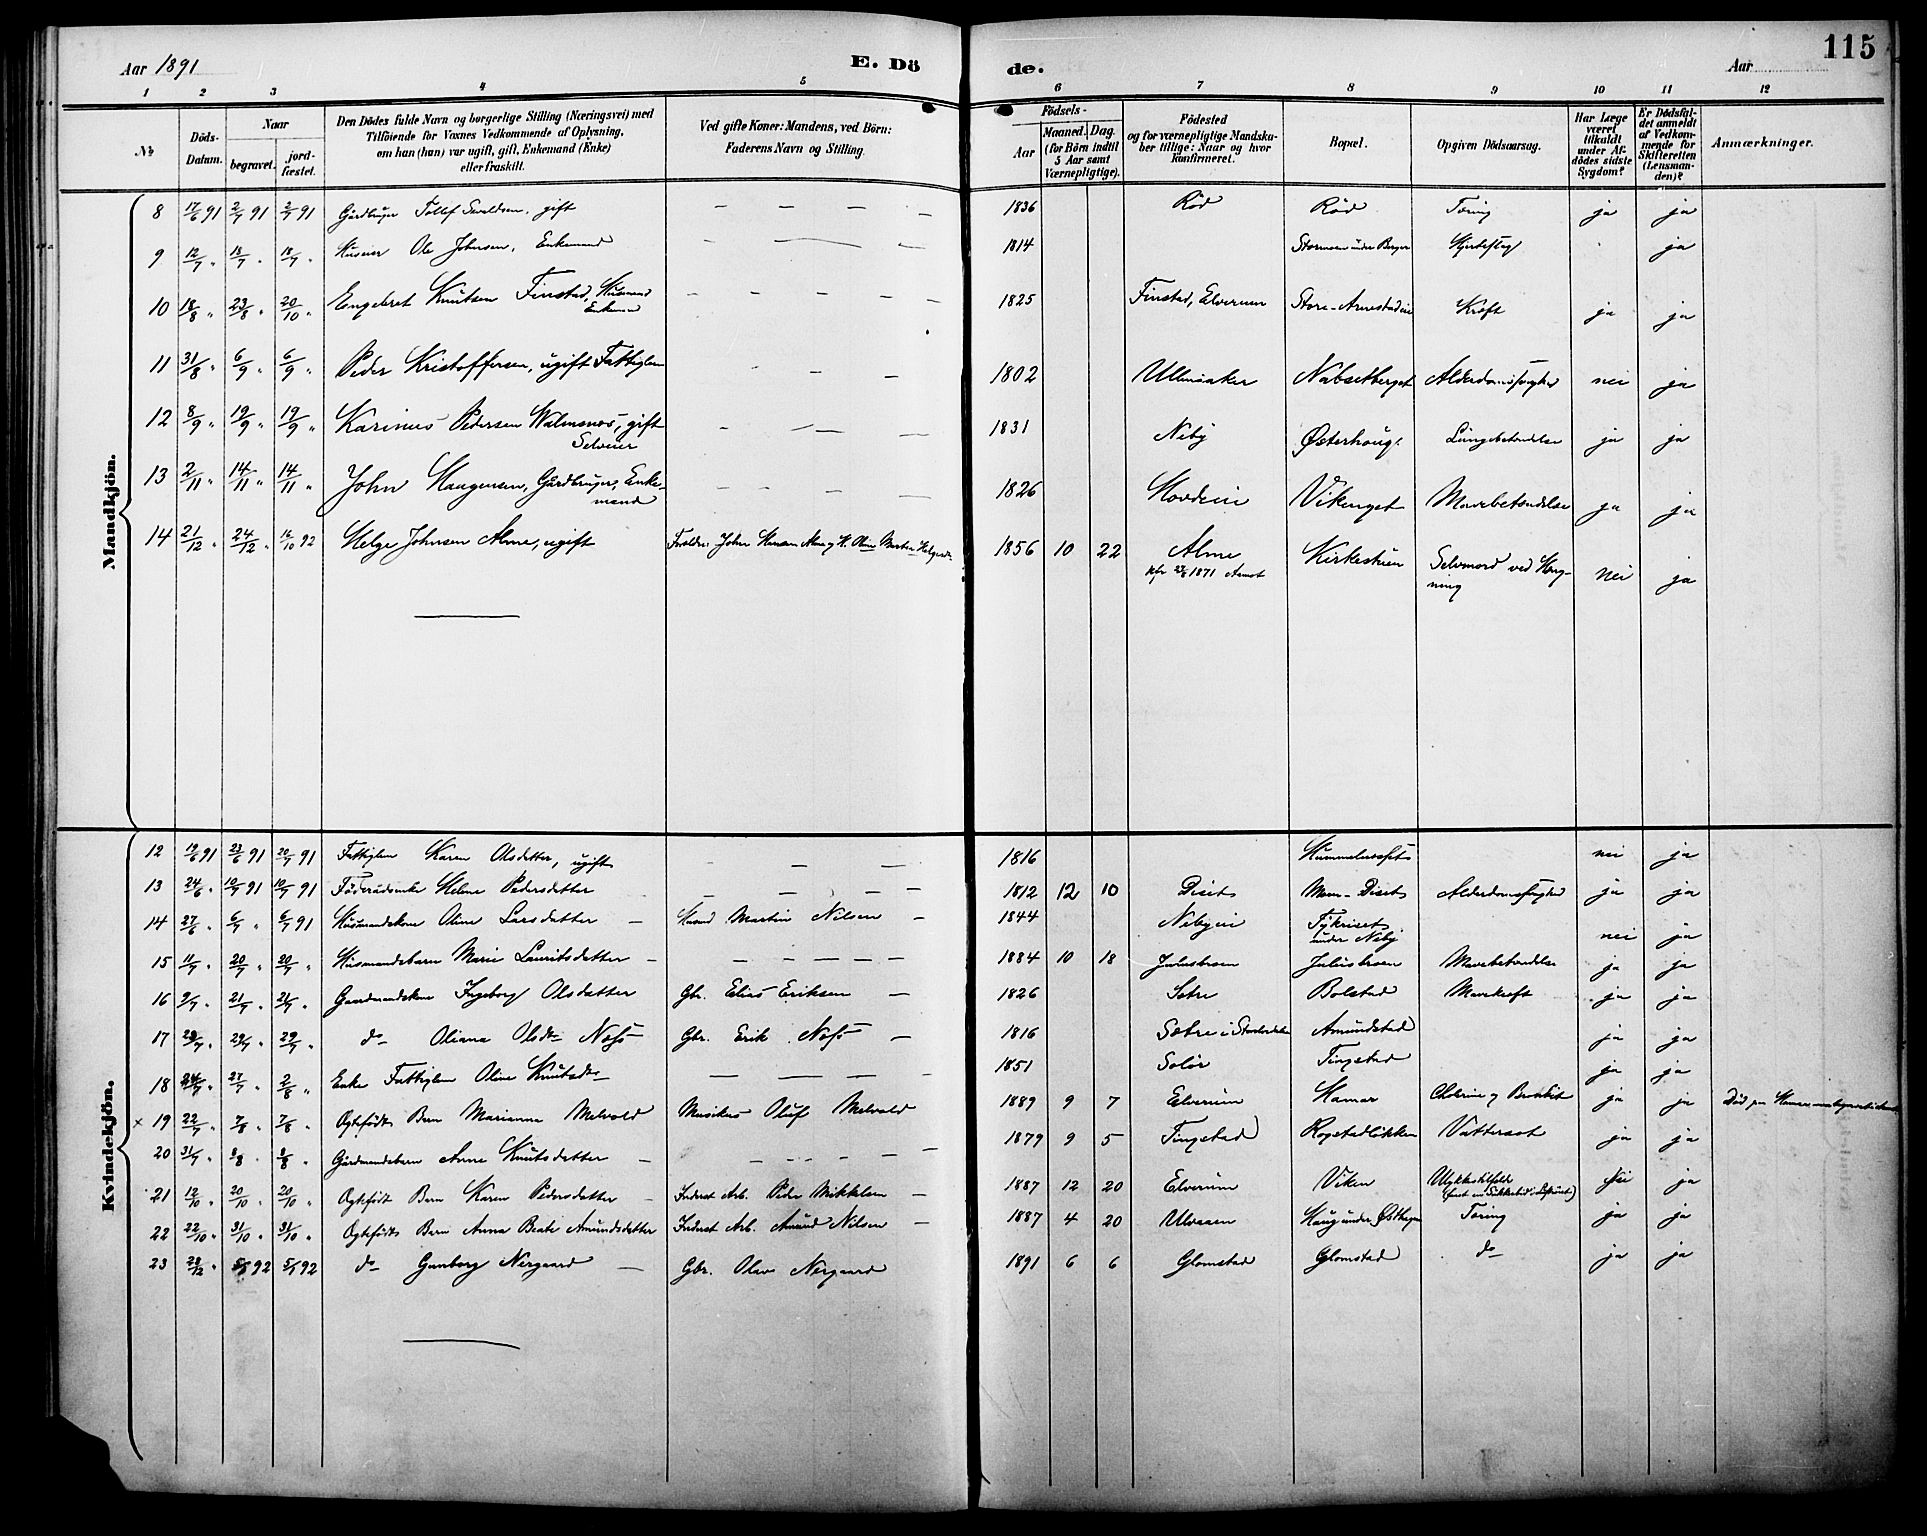 Aar 1891
E. Dö
de.
Aar
115
1 2 3 4 5 6 7 8 9 10 11 12
№
Döds-Datum.
Naar
begravet.
jord-fæstet.
Den Dödes fulde Navn og borgerlige Stilling (Næringsvei) med
Tilföiende for Voxnes Vedkommende af Oplysning,
om han (hun) var ugift, gift, Enkemand (Enke)
eller fraskilt.
Ved gifte Koner: Mandens, ved Börn:
Faderens Navn og Stilling.
Födsels-
Aar
Maaned. Dag.
(for Börn indtil
5 Aar samt
Værnepligtige).
Födested
og for værnepligtige Mandska-
ber tillige: Naar og hvor
Konfirmeret.
Bopæl.
Opgiven Dödsaarsag.
Har Læge
været
tilkaldt
under Af-
dödes sidste
Sygdom?
Er Dödsfal-
det anmeldt
af Vedkom-
mende for
Skifteretten
(Lensman-
den)?
Anmærkninger.
Mandkjön.
8 17/6 91 2/7 91 2/7 91 Gårdbruger Tollef Sevaldsen, gift — — — — 1836 Röd Röd Tæring ja ja
9 12/7 " 18/7 " 18/7 " Huseier Ole Johnsen, Enkemand — — — 1814 Stormoen under Berger Hjerteslag ja
10 18/8 " 23/8 " 20/10 " Engebret Knutsen Finstad, Husmand
Enkemand — — — — — 1825 Finstad, Elverum Store-Arnestadeie Kræft ja ja
11 31/8 " 6/9 " 6/9 " Peder Kristoffersen, ugift Fattiglem — — — 1802 Ullensaker Nabsetberget Alderdomssvaghed nei ja
12 8/9 " 19/9 " 19/9 " Karinus Pedersen Walmsnes, gift
Selveier — — — 1831 Neby Østerhaug Lungebetændelse ja ja
13 2/11 " 14/11 " 14/11 " John Haugensen, Gårdbruger, Enke-
mand — — — — 1826 Hovdeie Vikenget Mavebetændelse ja ja
14 21/12 " 24/12 " 16/10 92 Helge Johnsen Alme, ugift Foreldre: John Hansen Alme og H. Oline Marten Helgesdr. 1856 10 22 Alme
kfr 27/8 1871 Aamot Kirkestuen Selvmord ved Hæng-
ning nei ja
Kvindekjön.
12 19/6 91 23/6 91 20/7 91 Fattiglem Karen Olsdatter, ugift — — — 1816 Hummelvoset nei ja
13 24/6 " 10/7 91 10/7 91 Föderådsenke Helene Pedersdatter — — — — — 1812 12 10 Diset Moen-Diset Alderdomssvaghed ja ja
14 27/6 " 6/7 " 6/7 91 Husmandskone Oline Larsdatter — Husmd Martin Nilsen — 1844 Nebyeie Tykriset
under Neby nei ja
15 11/7 " 20/7 " 20/7 " Husmandsbarn Marie Lauritsdatter — — — — — — 1884 10 18 Julusbroen Julusbroen Mavebetændelse ja ja
16 9/7 " 21/7 " 21/7 " Gaardmandskone Ingeborg Olsdatter Gbr. Elias Eriksen — 1826 Sætre Bolstad Mavekræft ja ja
17 23/7 " 29/7 " 29/7 " do Oliana Olsdtr Næss Gbr. Erik Næss — 1816 Sætre i Storelvdalen Amundstad ja ja
18 24/7 " 27/7 " 2/8 " Enke Fattiglem Oline Knutsdtr — — — — 1851 Solör Tingstad ja ja
× 19 22/7 " 7/8 " 7/8 " Ogtefödt Barn Marianna Melvold Musikus Oluf Melvold 1889 9 7 Elverum Hamar Cholerine og Bronkit ja ja Död paa Hamar
20 31/7 " 8/8 " 8/8 " Gårdmandsbarn Anne Knutsdatter — — — — — — 1879 9 5 Tingstad Rogstadlökken Vattersot ja ja
21 12/10 " 20/10 " 20/10 " Ogtefödt Barn Karen Pedersdatter — Inderst Arb. Peder Mikkelsen — 1887 12 20 Elverum Viken Ulykkestilfælde nei ja
22 22/10 " 31/10 " 31/10 " Ogtefödt Barn Anna Beate Amundsdatter Inderst Arb. Amund Nilsen — 1887 4 20 Ulvaaen Haug under Østhagen Tæring ja ja
23 28/12 " 5/1 92 5/1 92 do Gunborg Nergaard — Gbr. Olav Nergaard 1891 6 6 Glomstad Glomstad do ja ja